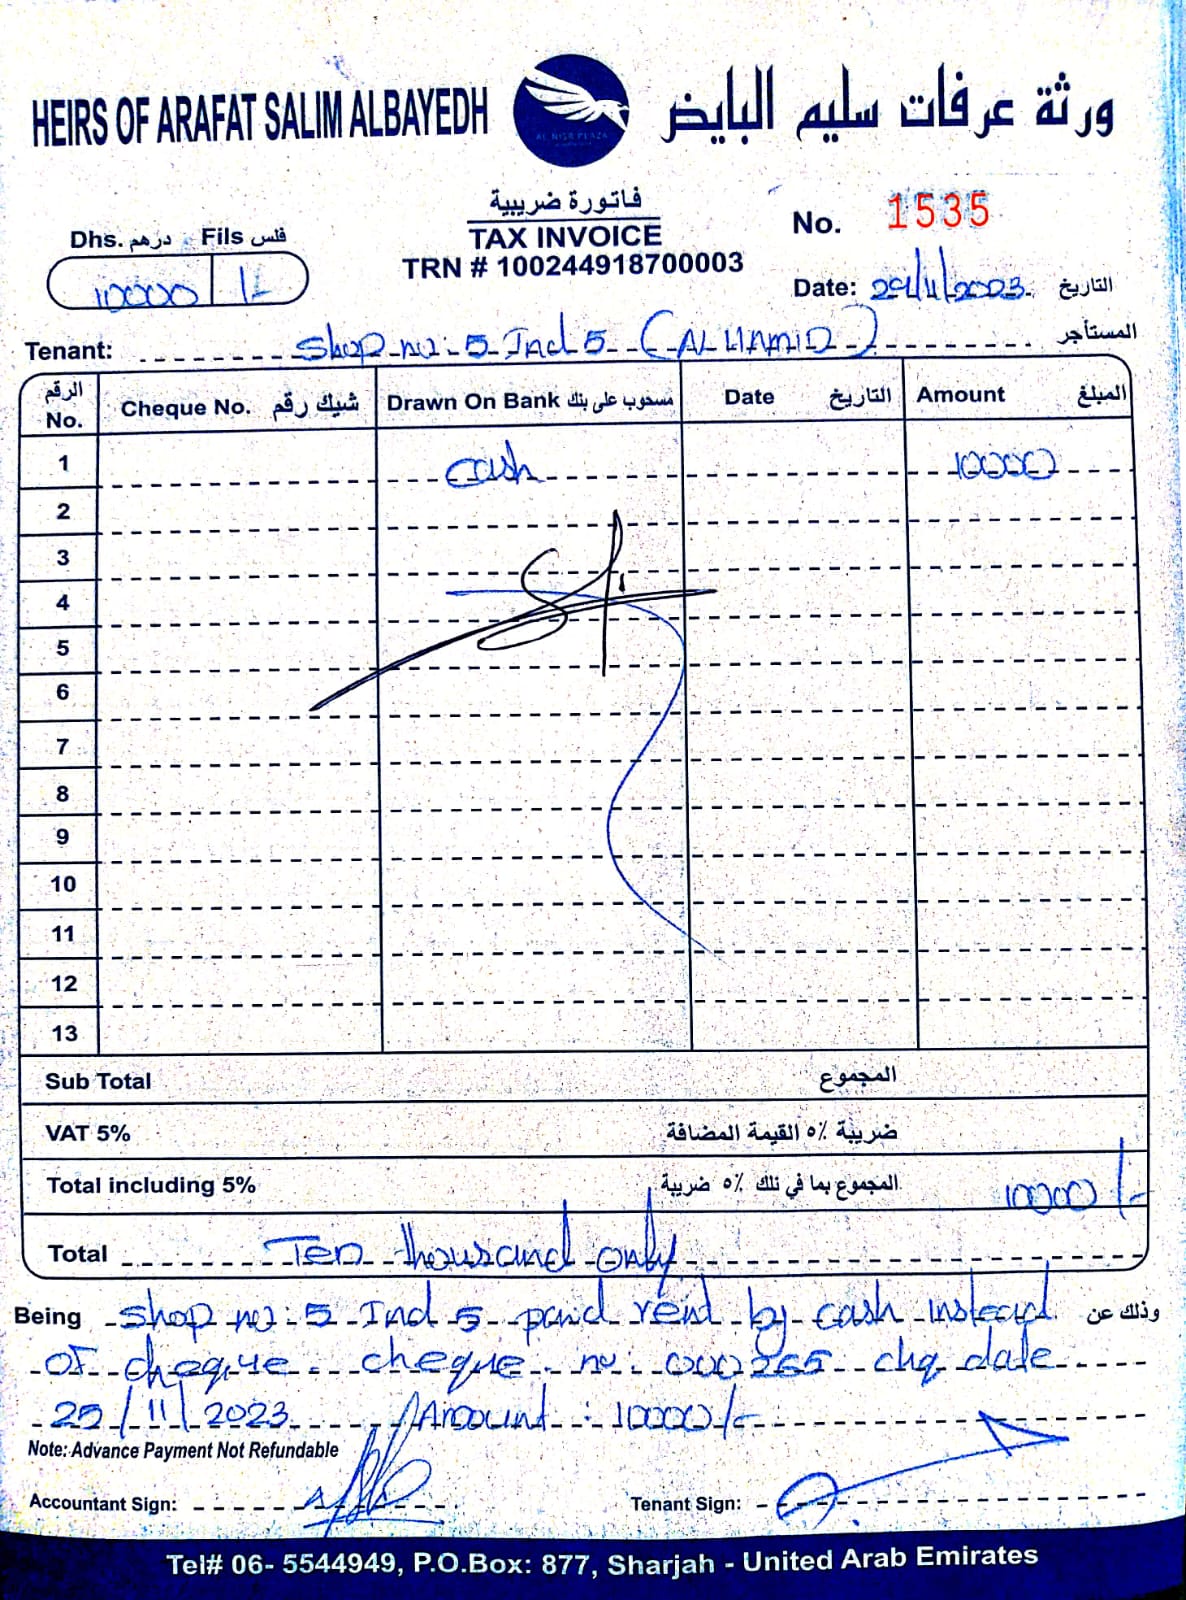 HEIRS OF ARAFAT SALIM ALBAYEDH
AL NISR PLAZA
ورثة عرفات سليم البايض
فاتورة ضريبية
TAX INVOICE
TRN # 100244918700003
No. 1535
Dhs. درهم Fils فلس
10000 /-
Date: 29/11/2023 التاريخ
Tenant: Shop no: 5 Ind 5 (AL HAMID) المستأجر
الرقم No. Cheque No. شيك رقم Drawn On Bank مسحوب على بنك Date التاريخ Amount المبلغ
1 Cash 10000
2
3
4
5
6
7
8
9
10
11
12
13
Sub Total المجموع
VAT 5% ضريبة ٥% القيمة المضافة
Total including 5% المجموع بما في ذلك ٥% ضريبة 10000/-
Total Ten thousand only
Being Shop no: 5 Ind 5 paid rent by cash instead وذلك عن
OF cheque. cheque. no: 000265 chq date
25/11/2023 Amount: 10000/-
Note: Advance Payment Not Refundable
Accountant Sign: Tenant Sign:
Tel# 06- 5544949, P.O.Box: 877, Sharjah - United Arab Emirates